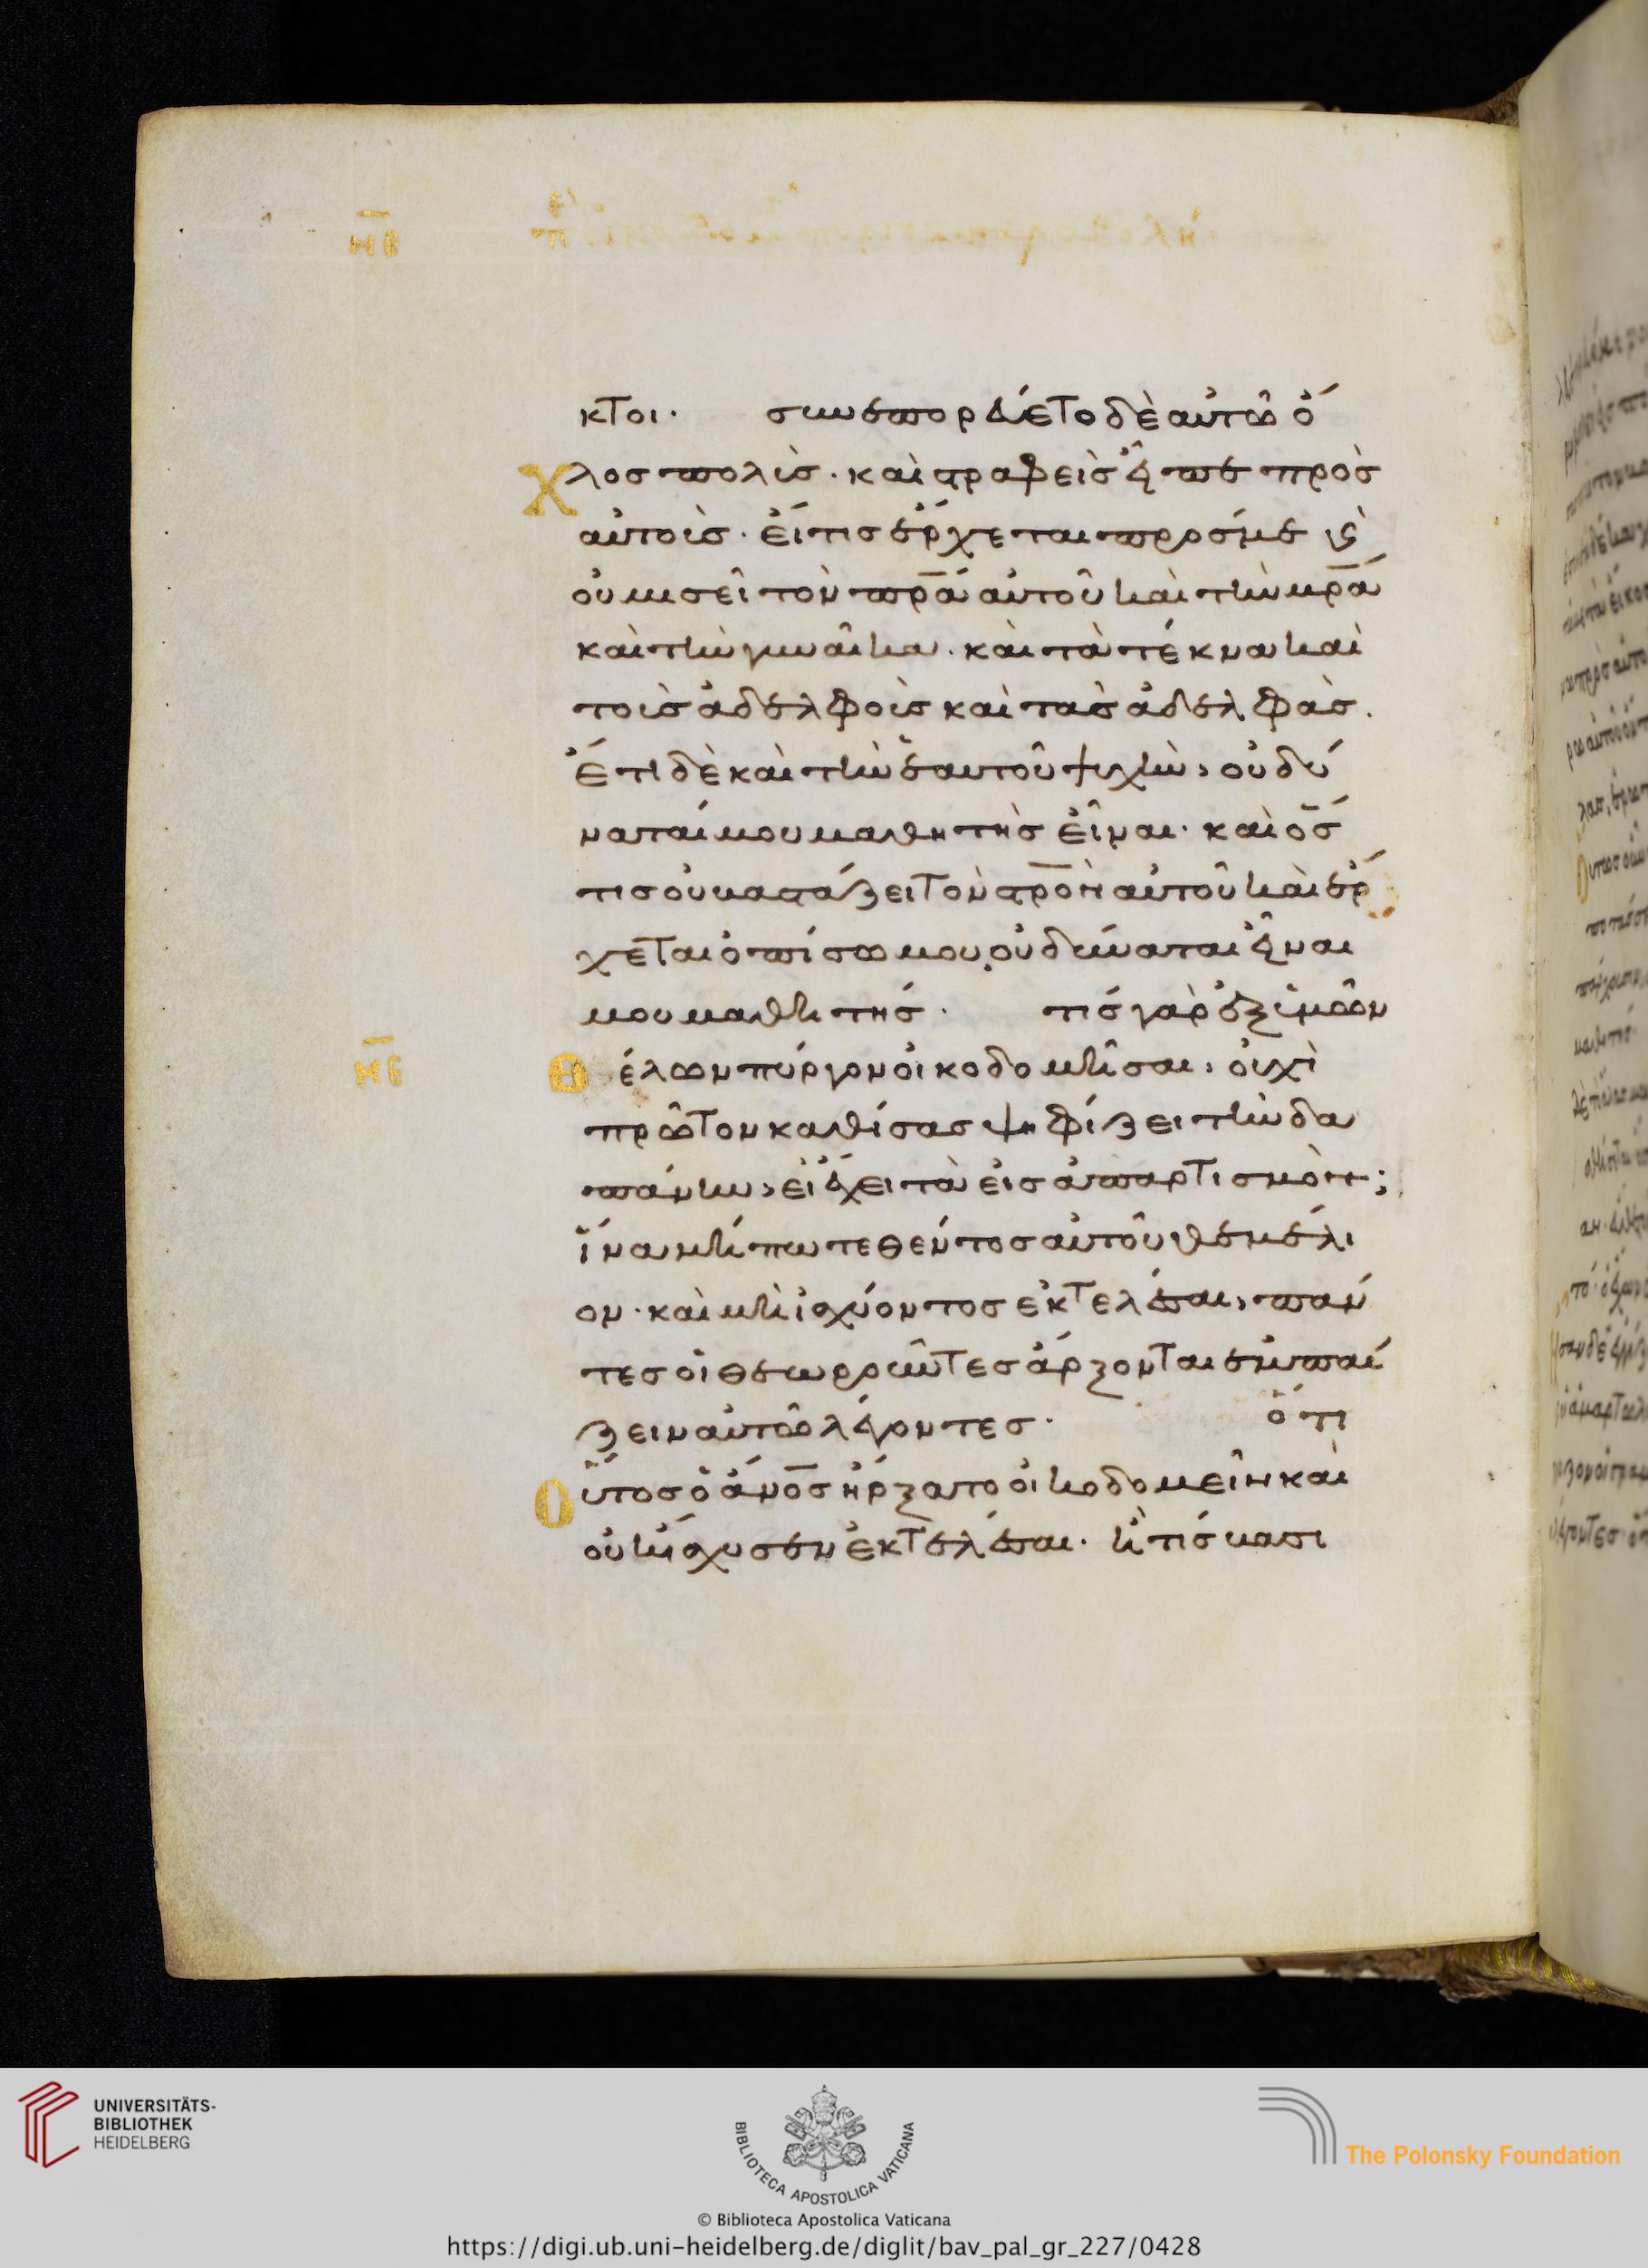 κτοι. συνεπορεύετο δὲ αὐτῶ ὄ
χλοσ πολὺσ. καὶ στραφεὶσ εἶπε πρὸσ
αὐτοὺσ. εἴ τισ ἔρχεται προσ με καὶ
οὐ μισεῖ τὸν πρ̅α αὐτοῦ καὶ τὴν μρ̅α
καὶ τὴν γυναῖκα. καὶ τὰ τέκνα καὶ
τοὺσ ἀδελφοὺσ καὶ τὰσ ἀδελφὰσ.
ἔτι δὲ καὶ τὴν ἑαυτοῦ ψυχὴν, οὐ δύ
ναταί μου μαθητὴσ εἶναι. καὶ ὅσ
τισ οὐ βαστάζει τὸν στρο̅ν αὐτοῦ καὶ ἔρ
χεται ὀπίσω μου, οὐ δύναται εἶναι
μου μαθητήσ. τίσ γὰρ ἐξ ὑμῶν
ΗΕ
θέλων πύργον οἰκοδομῆσαι, οὐχὶ
πρῶτον καθίσασ ψηφίζει τὴν δα
πάνην, εἰ ἔχει τὰ εἰσ ἀπαρτισμὸν;
ἵνα μήπω τεθέντοσ αὐτοῦ θεμέλι
ον. καὶ μὴ ἰσχύοντοσ ἐκτελέσαι, πάν
τεσ οἱ θεωροῦντεσ ἄρξονται ἐμπαί
ζειν αὐτῶ λέγοντεσ. ὅτι
οὗτοσ ὁ ἄνο̅σ ἤρξατο οἰκοδομεῖν καὶ
οὐκ ἴσχυσεν ἐκτελέσαι. ἢ τίσ βασι
UNIVERSITÄTS-
BIBLIOTHEK
HEIDELBERG
BIBLIOTECA APOSTOLICA VATICANA
The Polonsky Foundation
© Biblioteca Apostolica Vaticana
https://digi.ub.uni-heidelberg.de/diglit/bav_pal_gr_227/0428